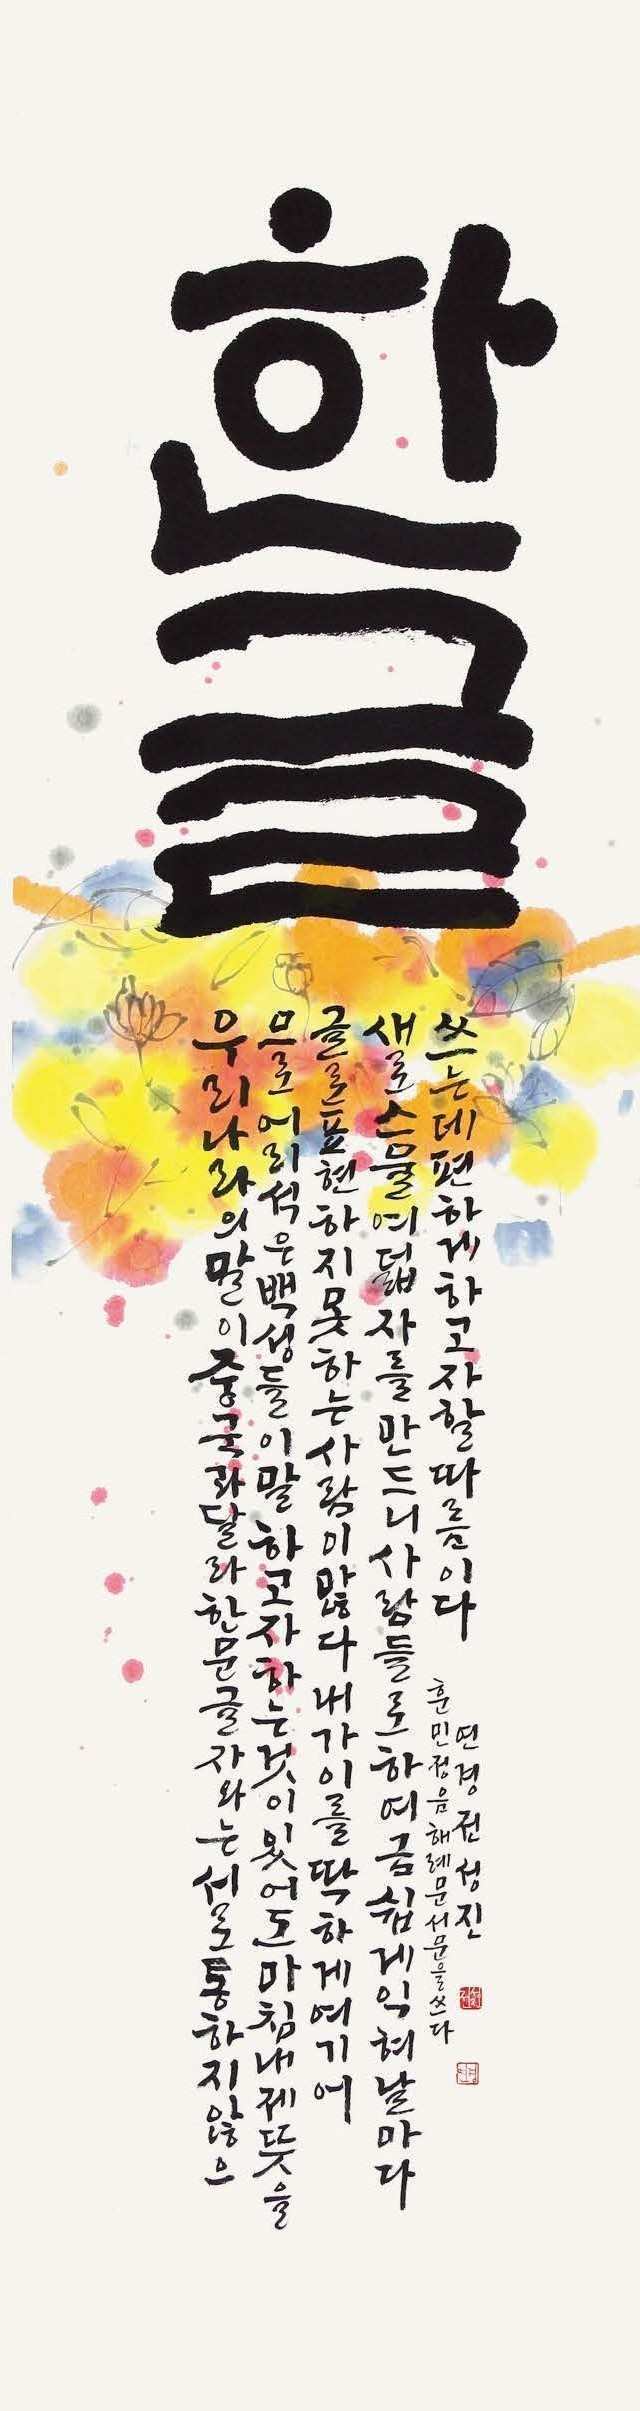 한글
우리나라의말이중국과달라한문글자와는서로통하지않으
므로어리석은백성들이말하고자하는것이있어도마침내제뜻을
글로표현하지못하는사람이많다내가이를딱하게여기어
새로스물여덟자를만드니사람들로하여금쉽게익혀날마다
쓰는데편하게하고자할따름이다
훈민정음해례문서문을쓰다
연경전성진